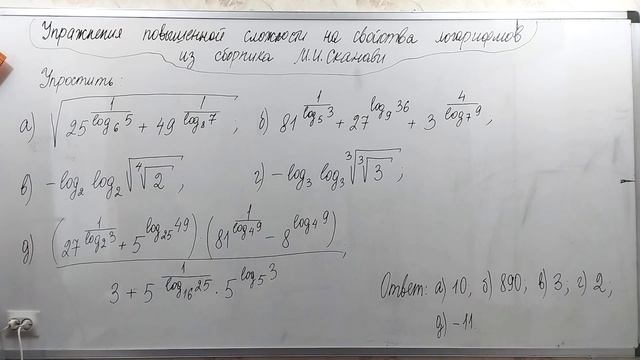 Упражнения повышенной сложности на свойства логарифмов
из сборника М.И.Сканави
Упростить:
а) √(25^(1/log₆5) + 49^(1/log₈7)); б) 81^(1/log₅3) + 27^(log₉36) + 3^(4/log₇9),
в) -log₂ log₂ √(⁴√2), г) -log₃ log₃ ³√(³√3);
д) ((27^(1/log₂3) + 5^(log₂₅49)) (81^(1/log₄9) - 8^(log₄9))) / (3 + 5^(1/log₁₆25) · 5^(log₅3)),
Ответ: а) 10, б) 890, в) 3; г) 2;
д) -11